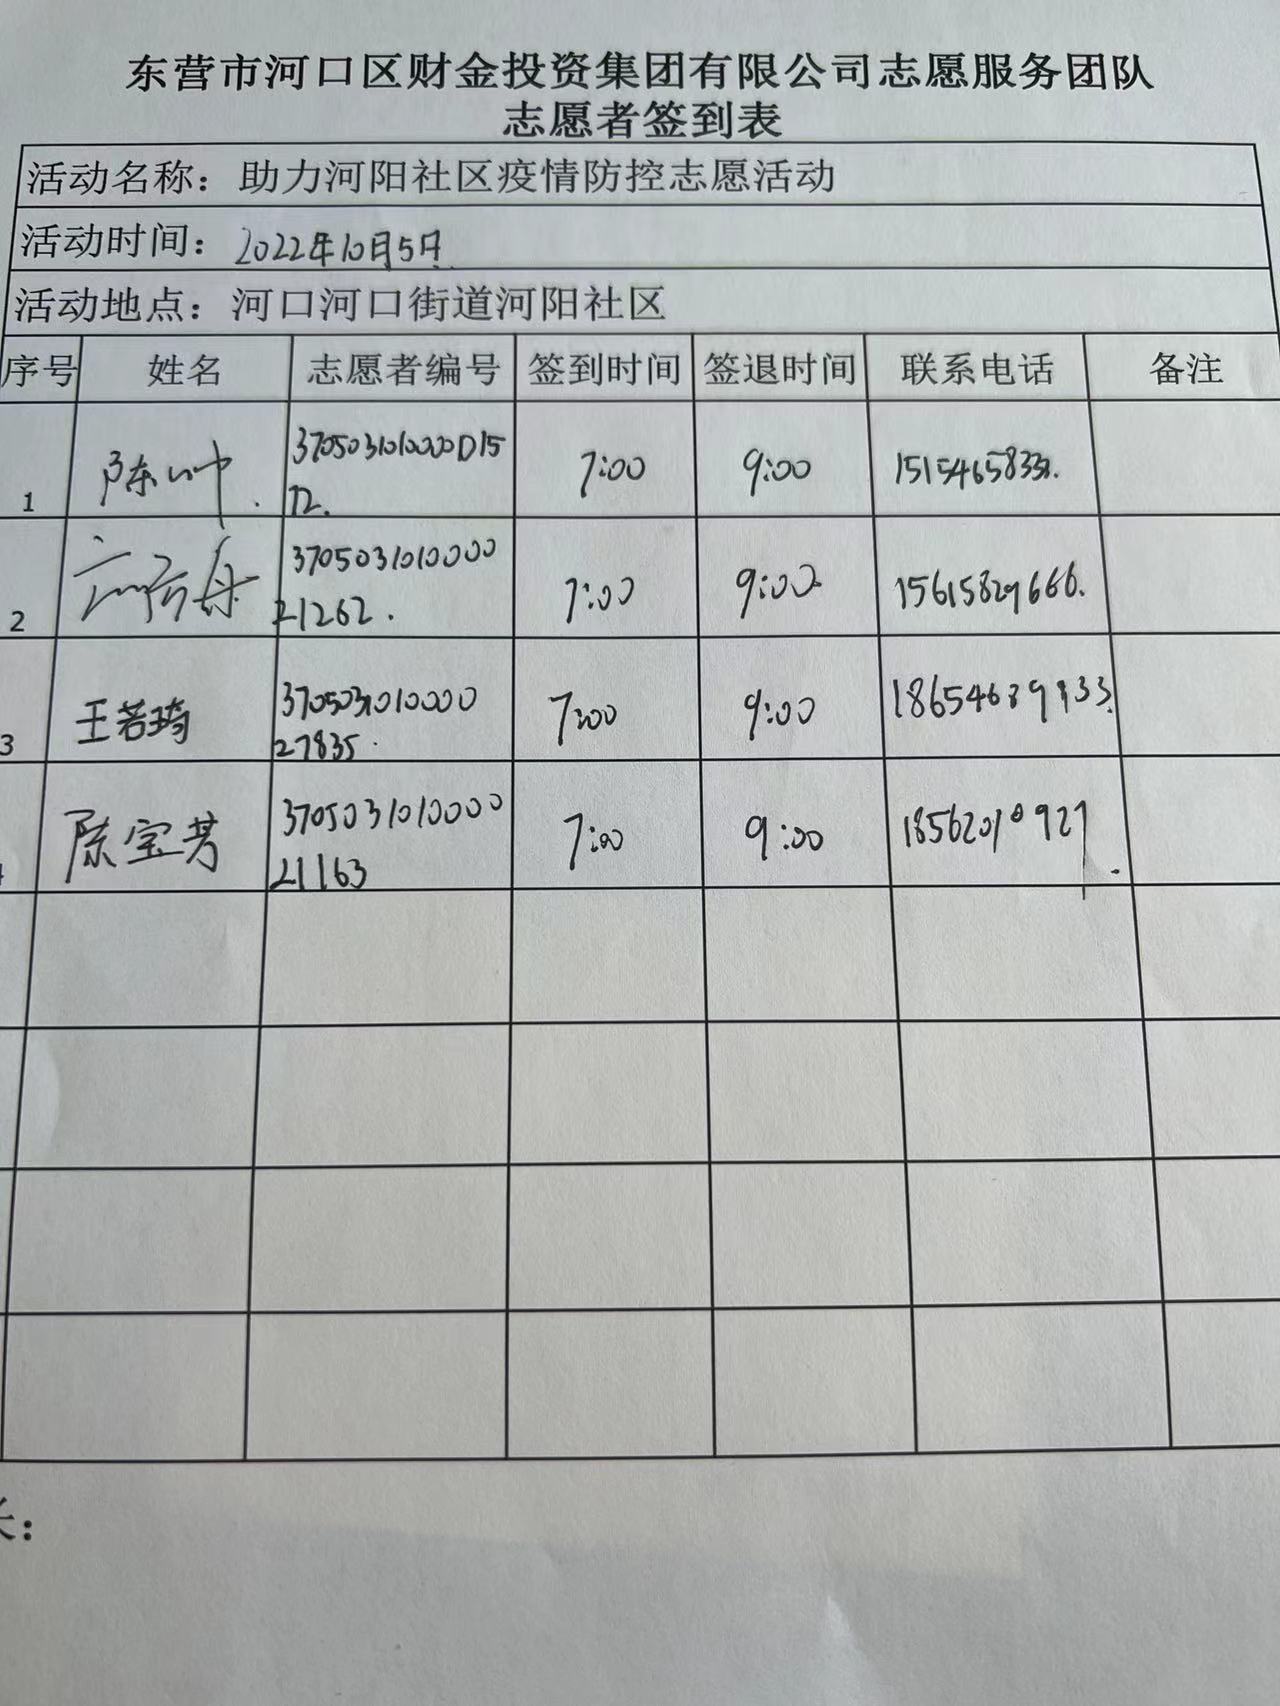 东营市河口区财金投资集团有限公司志愿服务团队
志愿者签到表
活动名称：助力河阳社区疫情防控志愿活动
活动时间：2022年10月5日
活动地点：河口河口街道河阳社区
序号 姓名 志愿者编号 签到时间 签退时间 联系电话 备注
1 陈 370503101000015 7:00 9:00
72.
2 3705031010000 7:00 9:00 15615829666.
21262.
3 王若琦 3705031010000 7:00 9:00 18654689933.
27835.
陈宝芳 3705031010000 7:00 9:00 18562010927.
21163
长：